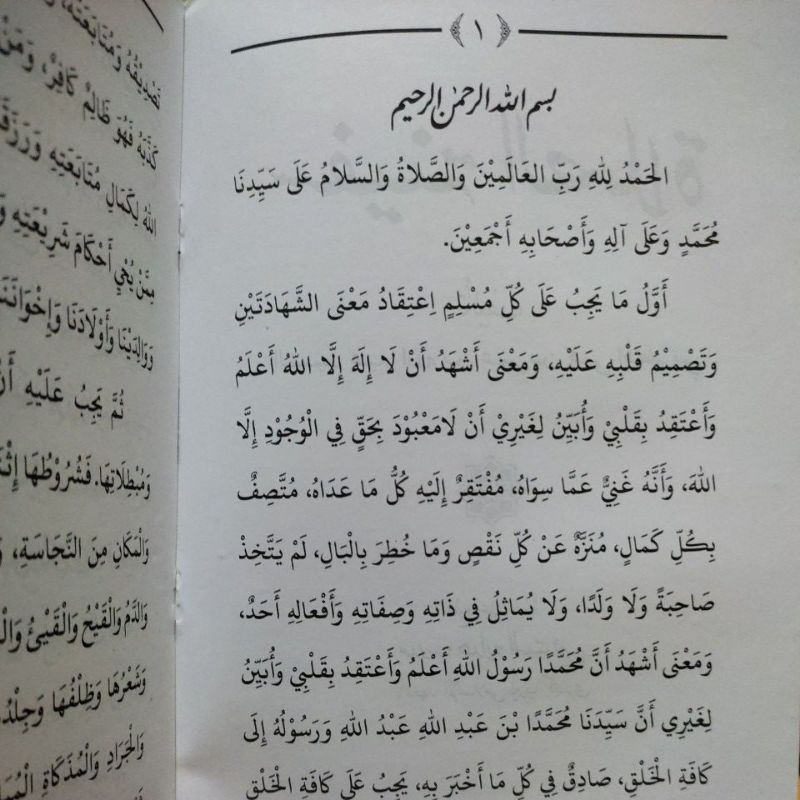 ١
بسم الله الرحمن الرحيم
الحَمْدُ لِلهِ رَبِّ العَالَمِيْنَ وَالصَّلَاةُ وَالسَّلَامُ عَلَى سَيِّدِنَا
مُحَمَّدٍ وَعَلَى آلِهِ وَأَصْحَابِهِ أَجْمَعِيْنَ.
أَوَّلُ مَا يَجِبُ عَلَى كُلِّ مُسْلِمٍ اِعْتِقَادُ مَعْنَى الشَّهَادَتَيْنِ
وَتَصْمِيْمُ قَلْبِهِ عَلَيْهِ، وَمَعْنَى أَشْهَدُ أَنْ لَا إِلَهَ إِلَّا اللهُ أَعْلَمُ
وَأَعْتَقِدُ بِقَلْبِيْ وَأُبَيِّنُ لِغَيْرِيْ أَنْ لَامَعْبُوْدَ بِحَقٍّ فِي الْوُجُوْدِ إِلَّا
اللهَ، وَأَنَّهُ غَنِيٌّ عَمَّا سِوَاهُ، مُفْتَقِرٌ إِلَيْهِ كُلُّ مَا عَدَاهُ، مُتَّصِفٌ
بِكُلِّ كَمَالٍ، مُنَزَّهٌ عَنْ كُلِّ نَقْصٍ وَمَا خُطِرَ بِالْبَالِ، لَمْ يَتَّخِذْ
صَاحِبَةً وَلَا وَلَدًا، وَلَا يُمَاثِلُ فِي ذَاتِهِ وَصِفَاتِهِ وَأَفْعَالِهِ أَحَدٌ،
وَمَعْنَى أَشْهَدُ أَنَّ مُحَمَّدًا رَسُوْلُ اللهِ أَعْلَمُ وَأَعْتَقِدُ بِقَلْبِيْ وَأُبَيِّنُ
لِغَيْرِي أَنَّ سَيِّدَنَا مُحَمَّدًا بْنَ عَبْدِ اللهِ عَبْدُ اللهِ وَرَسُوْلُهُ إِلَى
كَافَةِ الْخَلْقِ، صَادِقٌ فِي كُلِّ مَا أَخْبَرَ بِهِ، يَجِبُ عَلَى كَافَةِ الْخَلْقِ
تَصْدِيْقُهُ وَمُتَابَعَتُهُ،
كَذَّبَهُ فَهُوَ ظَالِمٌ كَافِرٌ، وَمَنْ
اللهُ لِكَمَالِ مُتَابَعَتِهِ وَرَزَقَنَا
مِمَّنْ يُحْيِ أَحْكَامَ شَرِيْعَتِهِ
وَوَالِدِيْنَا وَأَوْلَادَنَا وَإِخْوَانَنَا
ثُمَّ يَجِبُ عَلَيْهِ أَنْ
وَمُبْطِلَاتِهَا. فَشُرُوْطُهَا
وَالْمَكَانِ مِنَ النَّجَاسَةِ،
وَالدَّمُ وَالْقَيْحُ وَالْقَيْئُ
وَشَعْرُهَا وَظِلْفُهَا وَجِلْدُهَا
وَالْجَرَادِ وَالْمُذَكَّاةِ